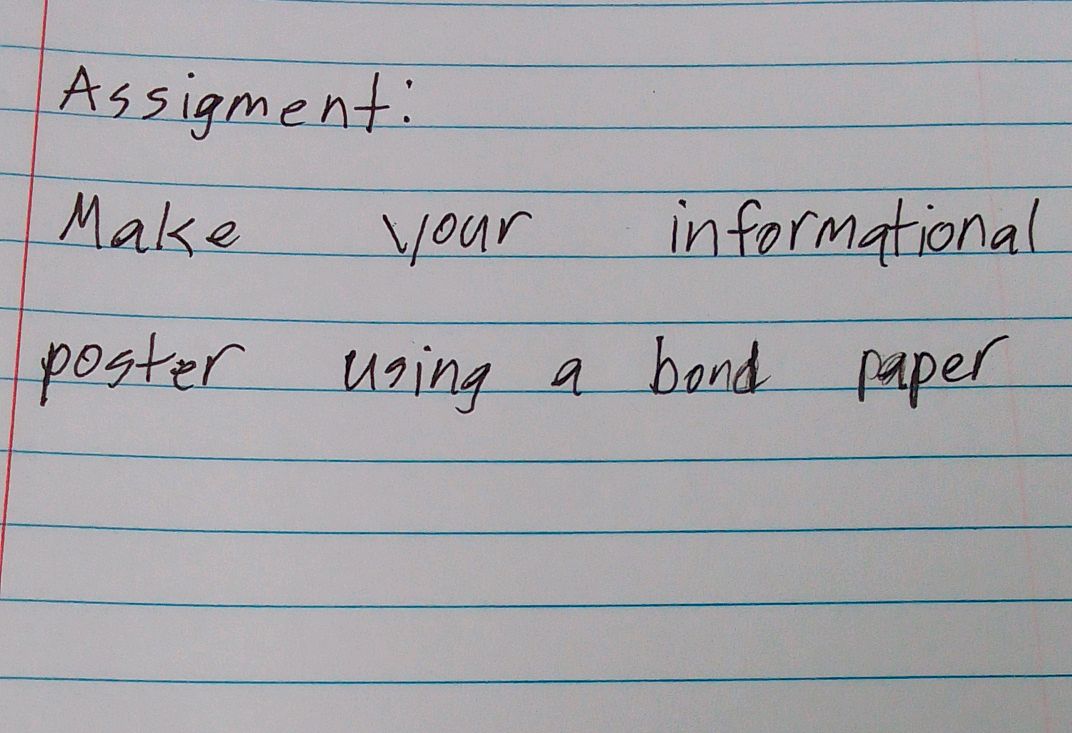 Assigment:
Make your informational
poster using a bond paper